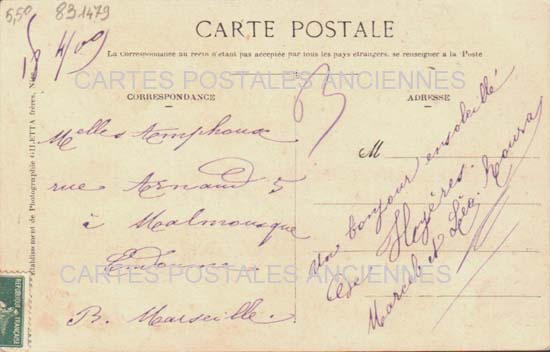 5,50 83.1479
4/09
CARTE POSTALE
La Correspondance au recto n'étant pas acceptée par tous les pays étrangers, se renseigner à la Poste
CARTES POSTALES ANCIENNES
CORRESPONDANCE
ADRESSE
Melles Amphoux
rue Arnaud 5
à Malmousque
Endoume
B. Marseille.
M
Un bonjour ensoleillé
de Hyères.
Marcel et Léo
CARTES POSTALES ANCIENNES
Etablissement de Photographie GILETTA frères, Nice
REPUBLIQUE FRANCAISE